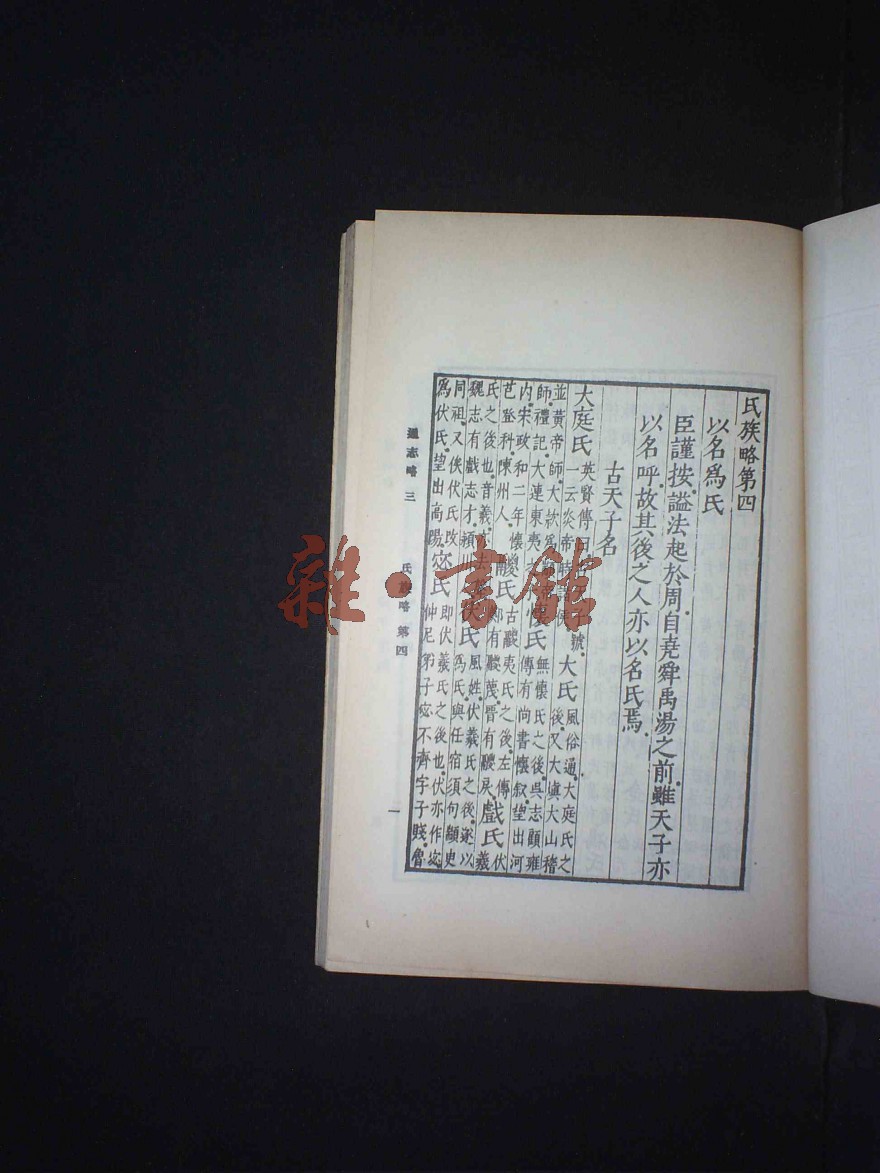 氏族略第四
以名爲氏
臣謹按謚法起於周自堯舜禹湯之前雖天子亦
以名呼故其後之人亦以名氏焉
古天子名
大庭氏
英賢傳曰
號
一云炎帝時諸侯
大氏
風俗通大庭氏之
後又大塡大山稽
並黃帝師大欵爲
師禮記大連東夷
懷氏
無懷氏之後吳志顧雍
傳有尚書懷叙望出河
內宋政和二年懷
芑登科陳州人
鬷氏
古鬷夷氏之後左傳
鄭有鬷蔑晉有鬷戾
戲氏
伏
羲
氏之後也音羲
魏志有戲志才潁川
伏氏
風姓伏羲氏之後遂以
爲氏與任宿須句顓臾
同祖又俟伏氏改
爲伏氏望出高陽
宓氏
即伏羲氏之後也伏亦作宓
仲尼弟子宓不齊字子賤魯
通志略 三 氏族略第四 一
雜·書館